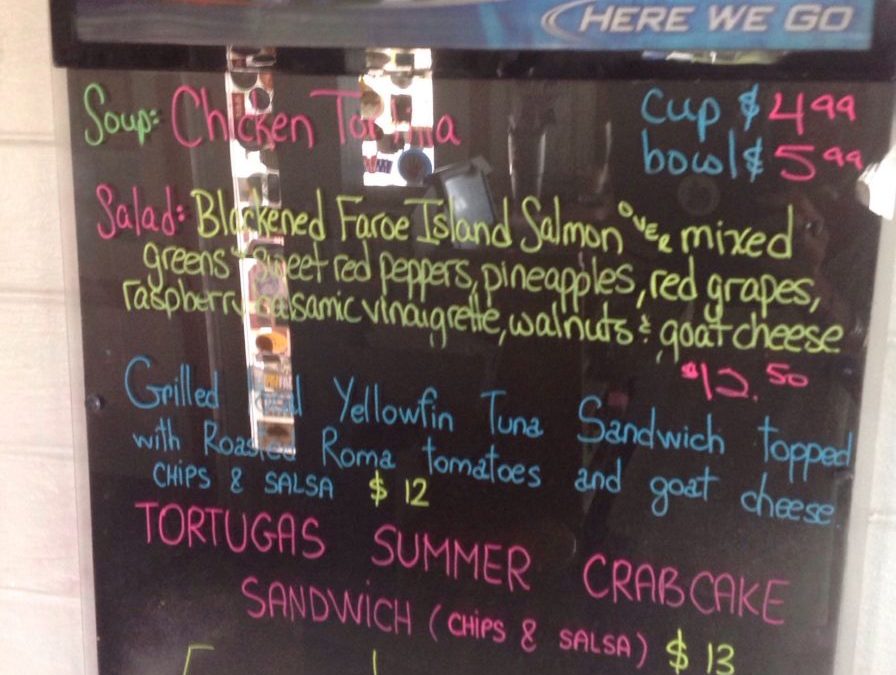 HERE WE GO
Soup: Chicken Tortilla
cup $4.99
bowl $5.99
Salad: Blackened Faroe Island Salmon OVER mixed
greens sweet red peppers, pineapples, red grapes,
raspberry balsamic vinaigrette, walnuts & goat cheese
$12.50
Grilled Yellowfin Tuna Sandwich topped
with Roasted Roma tomatoes and goat cheese
CHIPS & SALSA $12
TORTUGAS SUMMER CRABCAKE
SANDWICH (CHIPS & SALSA) $13